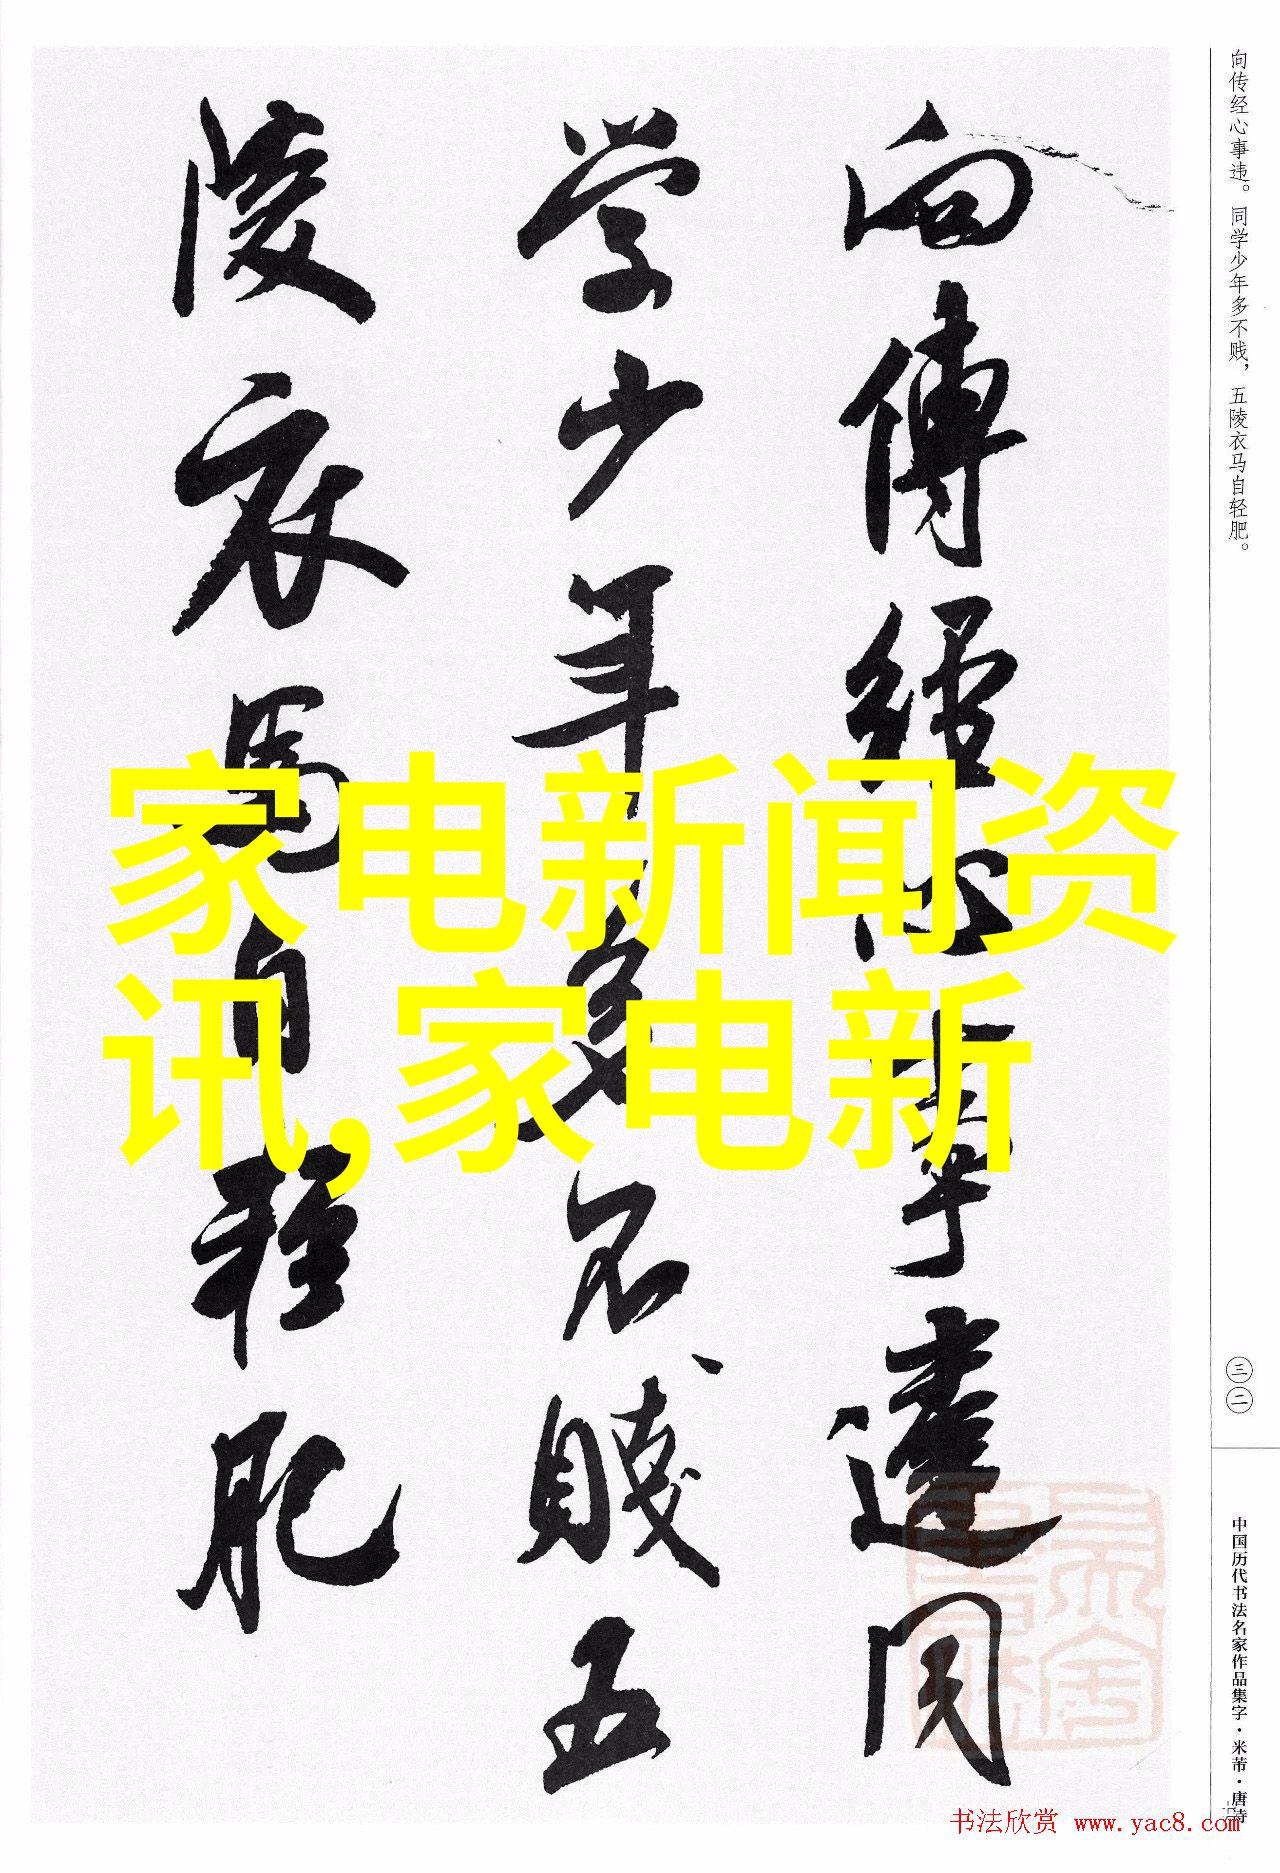 向傳經心事違同
学少年多不賤五
陵衣馬自軽肥
家电新闻资
讯,家电新
向传经心事违。同学少年多不贱，五陵衣马自轻肥。
三二
中国历代书法名家作品集字·米芾·唐诗
书法欣赏 www.yac8.com